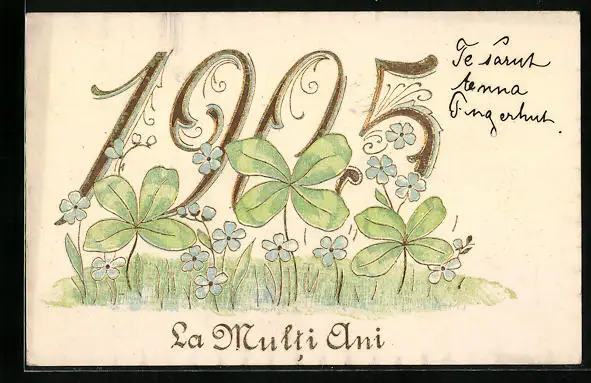 1905
Te sărut
Fingerhut.
La Mulți Ani